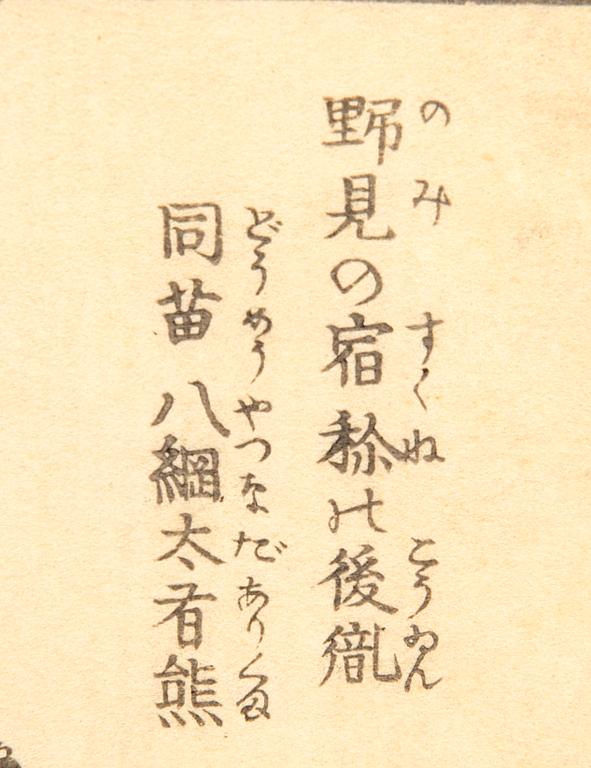 野見の宿祢の後胤
のみ すくね こうゐん
同苗八綱太有熊
どうめうやつなだありくま